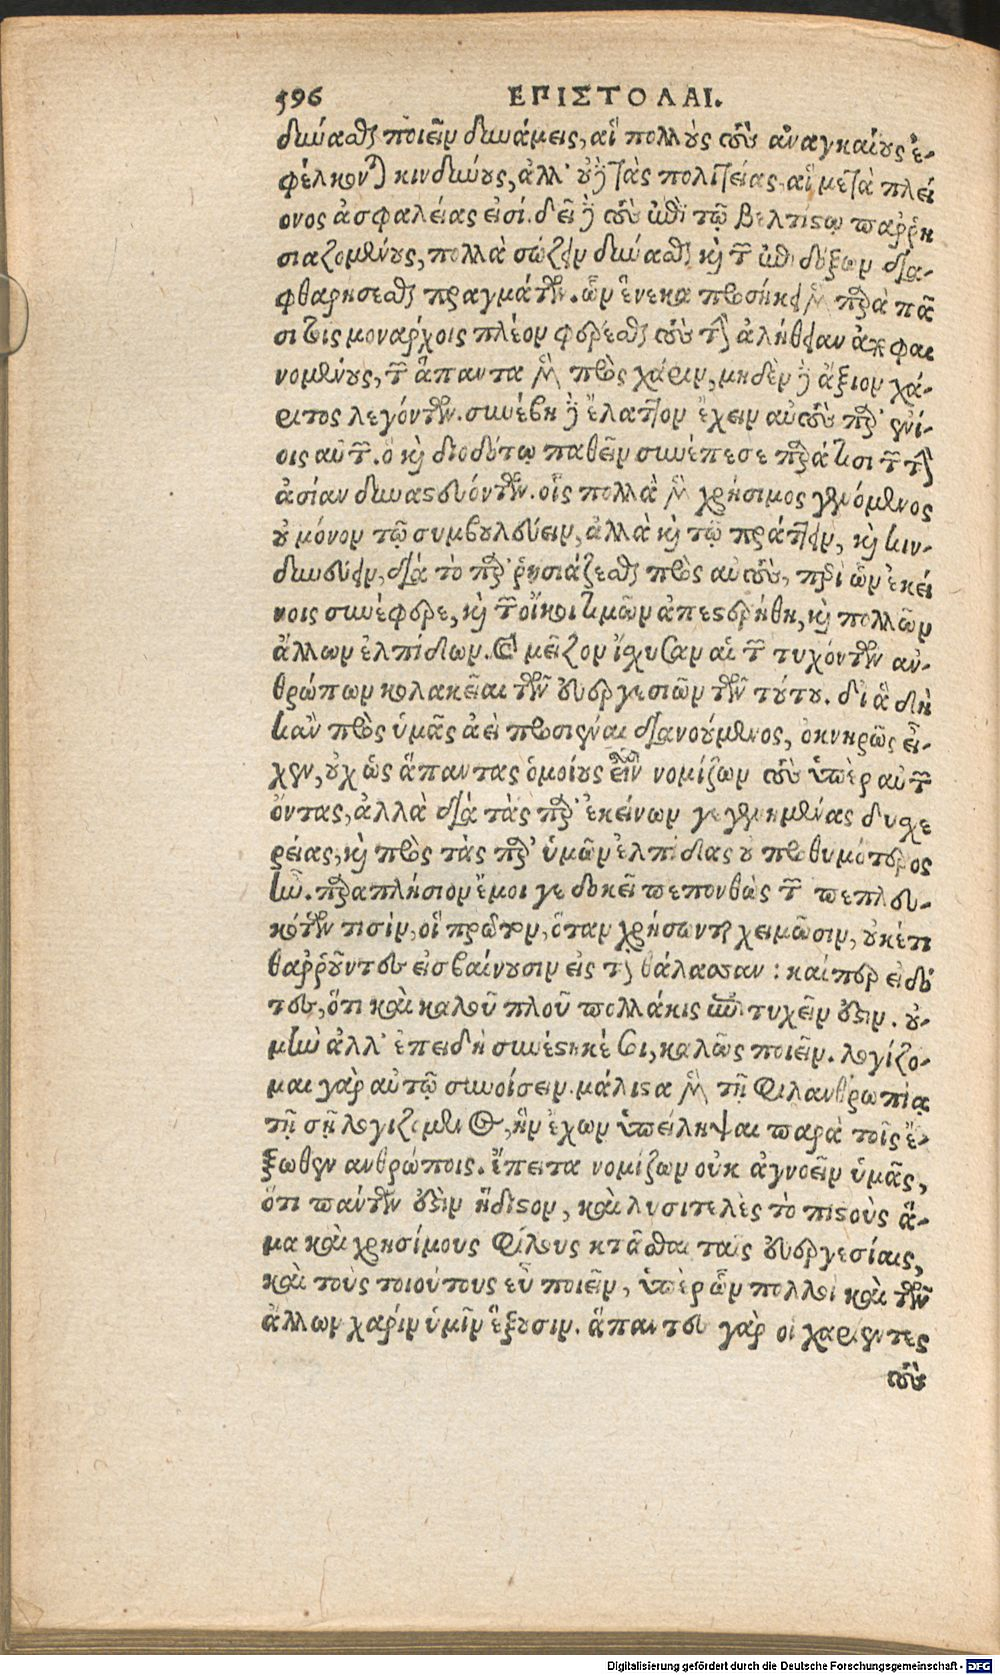 596 ΕΠΙΣΤΟΛΑΙ.
δυνάσθαι ποιεῖν δυνάμεις, αἳ πολλοὺς τοὺς ἀναγκαίους ἐ-
φέλκονται κινδύνους, ἀλλ' οὐ τὰς πολιτείας, αἳ μετὰ πλεί
ονος ἀσφαλείας εἰσί. δεῖ τοὺς ἐπὶ τῷ βελτίστῳ παῤῥη
σιαζομένους, πολλὰ σώζειν δύνασθαι καὶ τῶν ἐπιδόξων δια-
φθαρήσεσθαι πραγμάτων. ὧν ἕνεκα προσήκει μὲν παρὰ πᾶ
σι τοῖς μονάρχοις πλέον φέρεσθαι τοὺς τὴν ἀλήθειαν ἀποφαι
νομένους, τῶν ἅπαντα μὲν πρὸς χάριν, μηδὲν δὲ ἄξιον χά-
ριτος λεγόντων. συνέβη δὲ ἔλαττον ἔχειν αὐτοὺς παρ' ἐνί-
οις αὐτῶν. ὃ καὶ διοδότῳ παθεῖν συνέπεσε παρά τισι τῶν τὴν
ἀσίαν δυναστευόντων. οἷς πολλὰ μὲν χρήσιμος γενόμενος
οὐ μόνον τῷ συμβουλεύειν, ἀλλὰ καὶ τῷ πράττειν, καὶ κιν-
δυνεύειν, διὰ τὸ παῤῥησιάζεσθαι πρὸς αὐτοὺς, περὶ ὧν ἐκεί
νοις συνέφερε, καὶ τῶν οἴκοι τιμῶν ἀπεστερήθη, καὶ πολλῶν
ἄλλων ἐλπίδων. καὶ μεῖζον ἴσχυσαν αἱ τῶν τυχόντων ἀν-
θρώπων κολακεῖαι τῶν εὐεργεσιῶν τῶν τούτου. δι' ἃ δὴ
καὶ πρὸς ὑμᾶς ἀεὶ προσιέναι διανοούμενος, ὀκνηρῶς εἶ-
χεν, οὐχ ὡς ἅπαντας ὁμοίους εἶναι νομίζων τοὺς ὑπὲρ αὐτὸν
ὄντας, ἀλλὰ διὰ τὰς παρ' ἐκείνων γεγενημένας δυσχε
ρείας, καὶ πρὸς τὰς παρ' ὑμῶν ἐλπίδας οὐ προθυμότερος
ἦν. παραπλήσιον ἔμοι γε δοκεῖ πεπονθὼς τῶν πεπλευ-
κότων τισίν, οἳ πρῶτον, ὅταν χρήσωνται χειμῶσιν, οὐκέτι
θαῤῥοῦντες εἰσβαίνουσιν εἰς τὴν θάλασσαν: καίπερ εἰδό
τες, ὅτι καὶ καλοῦ πλοῦ πολλάκις ἐπιτυχεῖν ἔστιν. οὐ-
μὴν ἀλλ' ἐπειδὴ συνέστηκέ σοι, καλῶς ποιεῖν. λογίζο-
μαι γὰρ αὐτῷ συνοίσειν. μάλιστα μὲν τῇ φιλανθρωπίᾳ
τῇ σῇ λογιζόμενος, ἣν ἔχων ὑπείληψαι παρὰ τοῖς ἔ-
ξωθεν ἀνθρώποις. ἔπειτα νομίζων οὐκ ἀγνοεῖν ὑμᾶς,
ὅτι πάντων ἐστὶν ἥδιστον, καὶ λυσιτελὲς τὸ πιστοὺς ἅ-
μα καὶ χρησίμους φίλους κτᾶσθαι ταῖς εὐεργεσίαις,
καὶ τοὺς τοιούτους εὖ ποιεῖν, ὑπὲρ ὧν πολλοὶ καὶ τῶν
ἄλλων χάριν ὑμῖν ἕξουσιν. ἅπαντες γὰρ οἱ χαρίεντες
τοὺς
Digitalisierung gefördert durch die Deutsche Forschungsgemeinschaft - DFG